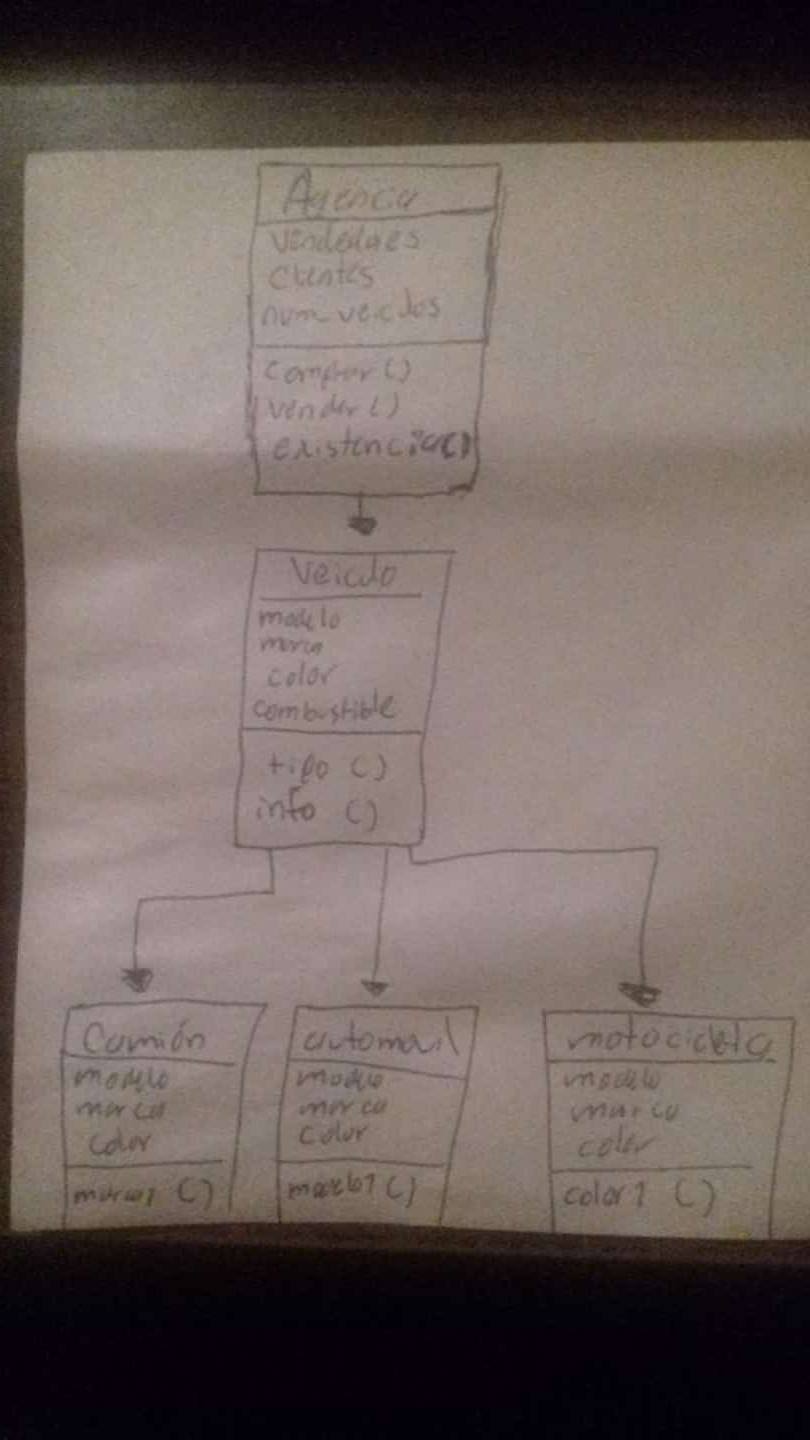 Agencia
Vendedores
Clientes
num_veiculos
comprar ()
vender ()
existencia()
Veiculo
modelo
marca
color
combustible
tipo ()
info ()
Camión
modelo
marca
color
marca1 ()
automovil
modelo
marca
color
modelo1 ()
motocicleta
modelo
marca
color
color1 ()